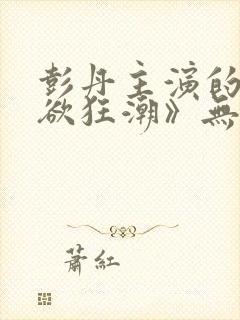 彭丹主演的
欲狂潮》無
蕭紅